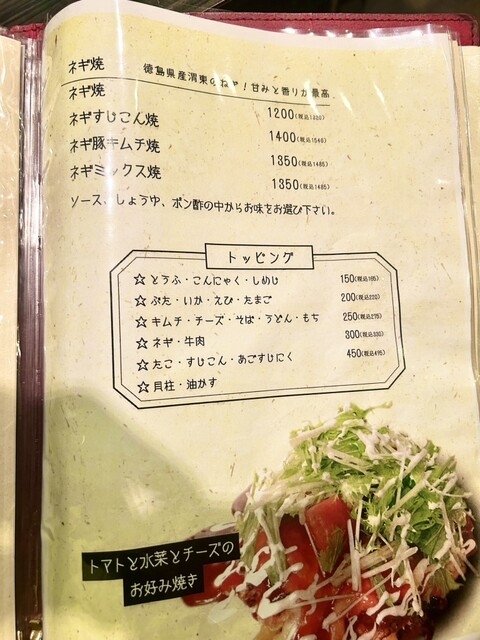 ネギ焼 徳島県産渭東のねぎ！甘みと香りが最高
ネギ焼 1200(税込1320)
ネギすじこん焼 1400(税込1540)
ネギ豚キムチ焼 1350(税込1485)
ネギミックス焼 1350(税込1485)
ソース、しょうゆ、ポン酢の中からお味をお選び下さい。
トッピング
☆とうふ・こんにゃく・しめじ 150(税込165)
☆ぶた・いか・えび・たまご 200(税込220)
☆キムチ・チーズ・そば・うどん・もち 250(税込275)
☆ネギ・牛肉 300(税込330)
☆たこ・すじこん・あごすじにく 450(税込495)
☆貝柱・油かす
トマトと水菜とチーズの
お好み焼き